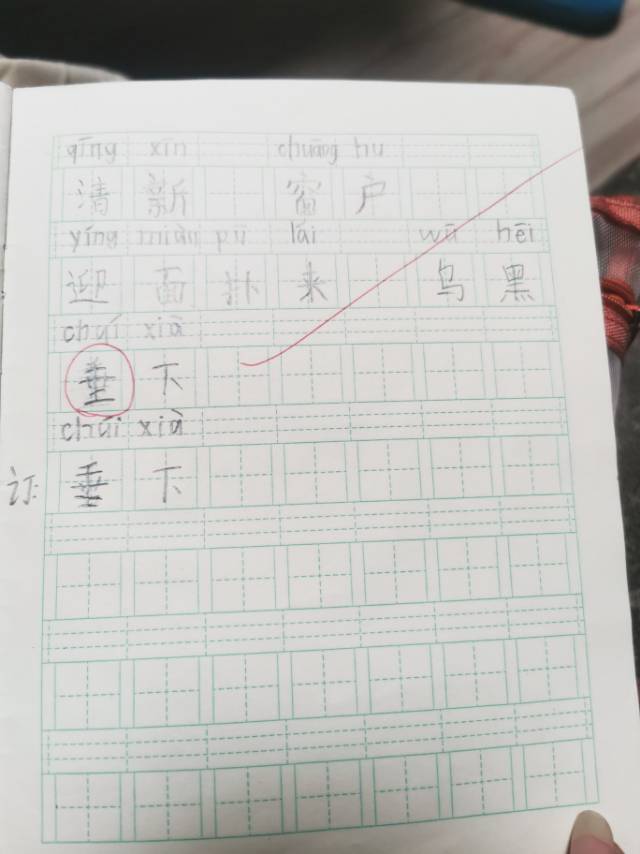 qīng xīn chuāng hu
清新 窗户
yíng miàn pū lái wū hēi
迎面扑来 乌黑
chuí xià
垂下
chúi xià
订: 垂下